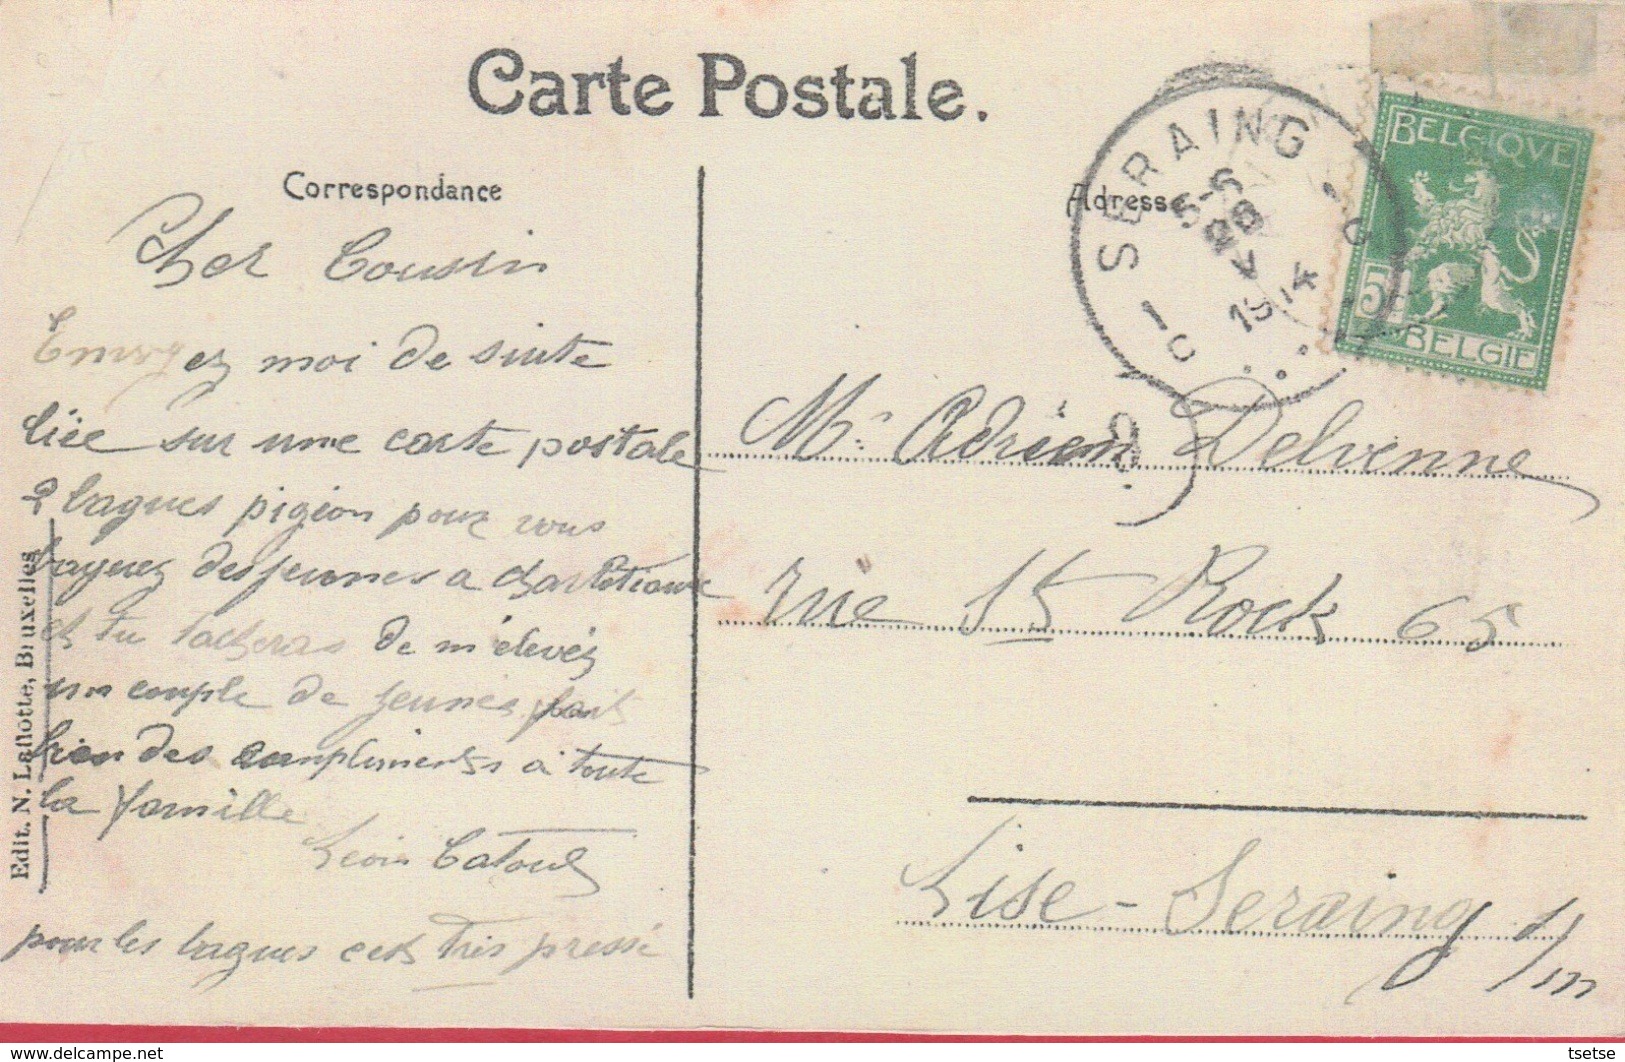 Carte Postale.
Correspondance
Adresse
SERAING
5-6
28 V
1914
1-C
1-C
BELGIQVE
5
BELGIE
Cher Cousin
Envoyez moi de suite
liée sur une carte postale
2 bagues pigion pour vous
baguez des jeunes a
et tu tacheras de m'élevéz
un couple de jeunes
bien des compliments a toute
la famille
Léon Catoul
pour les bagues cest tris pressé
Mr. Adrien Delvenne
rue St Rock 65
Lise-Seraing s/m
Edit. N. Laflotte, Bruxelles
tsetse